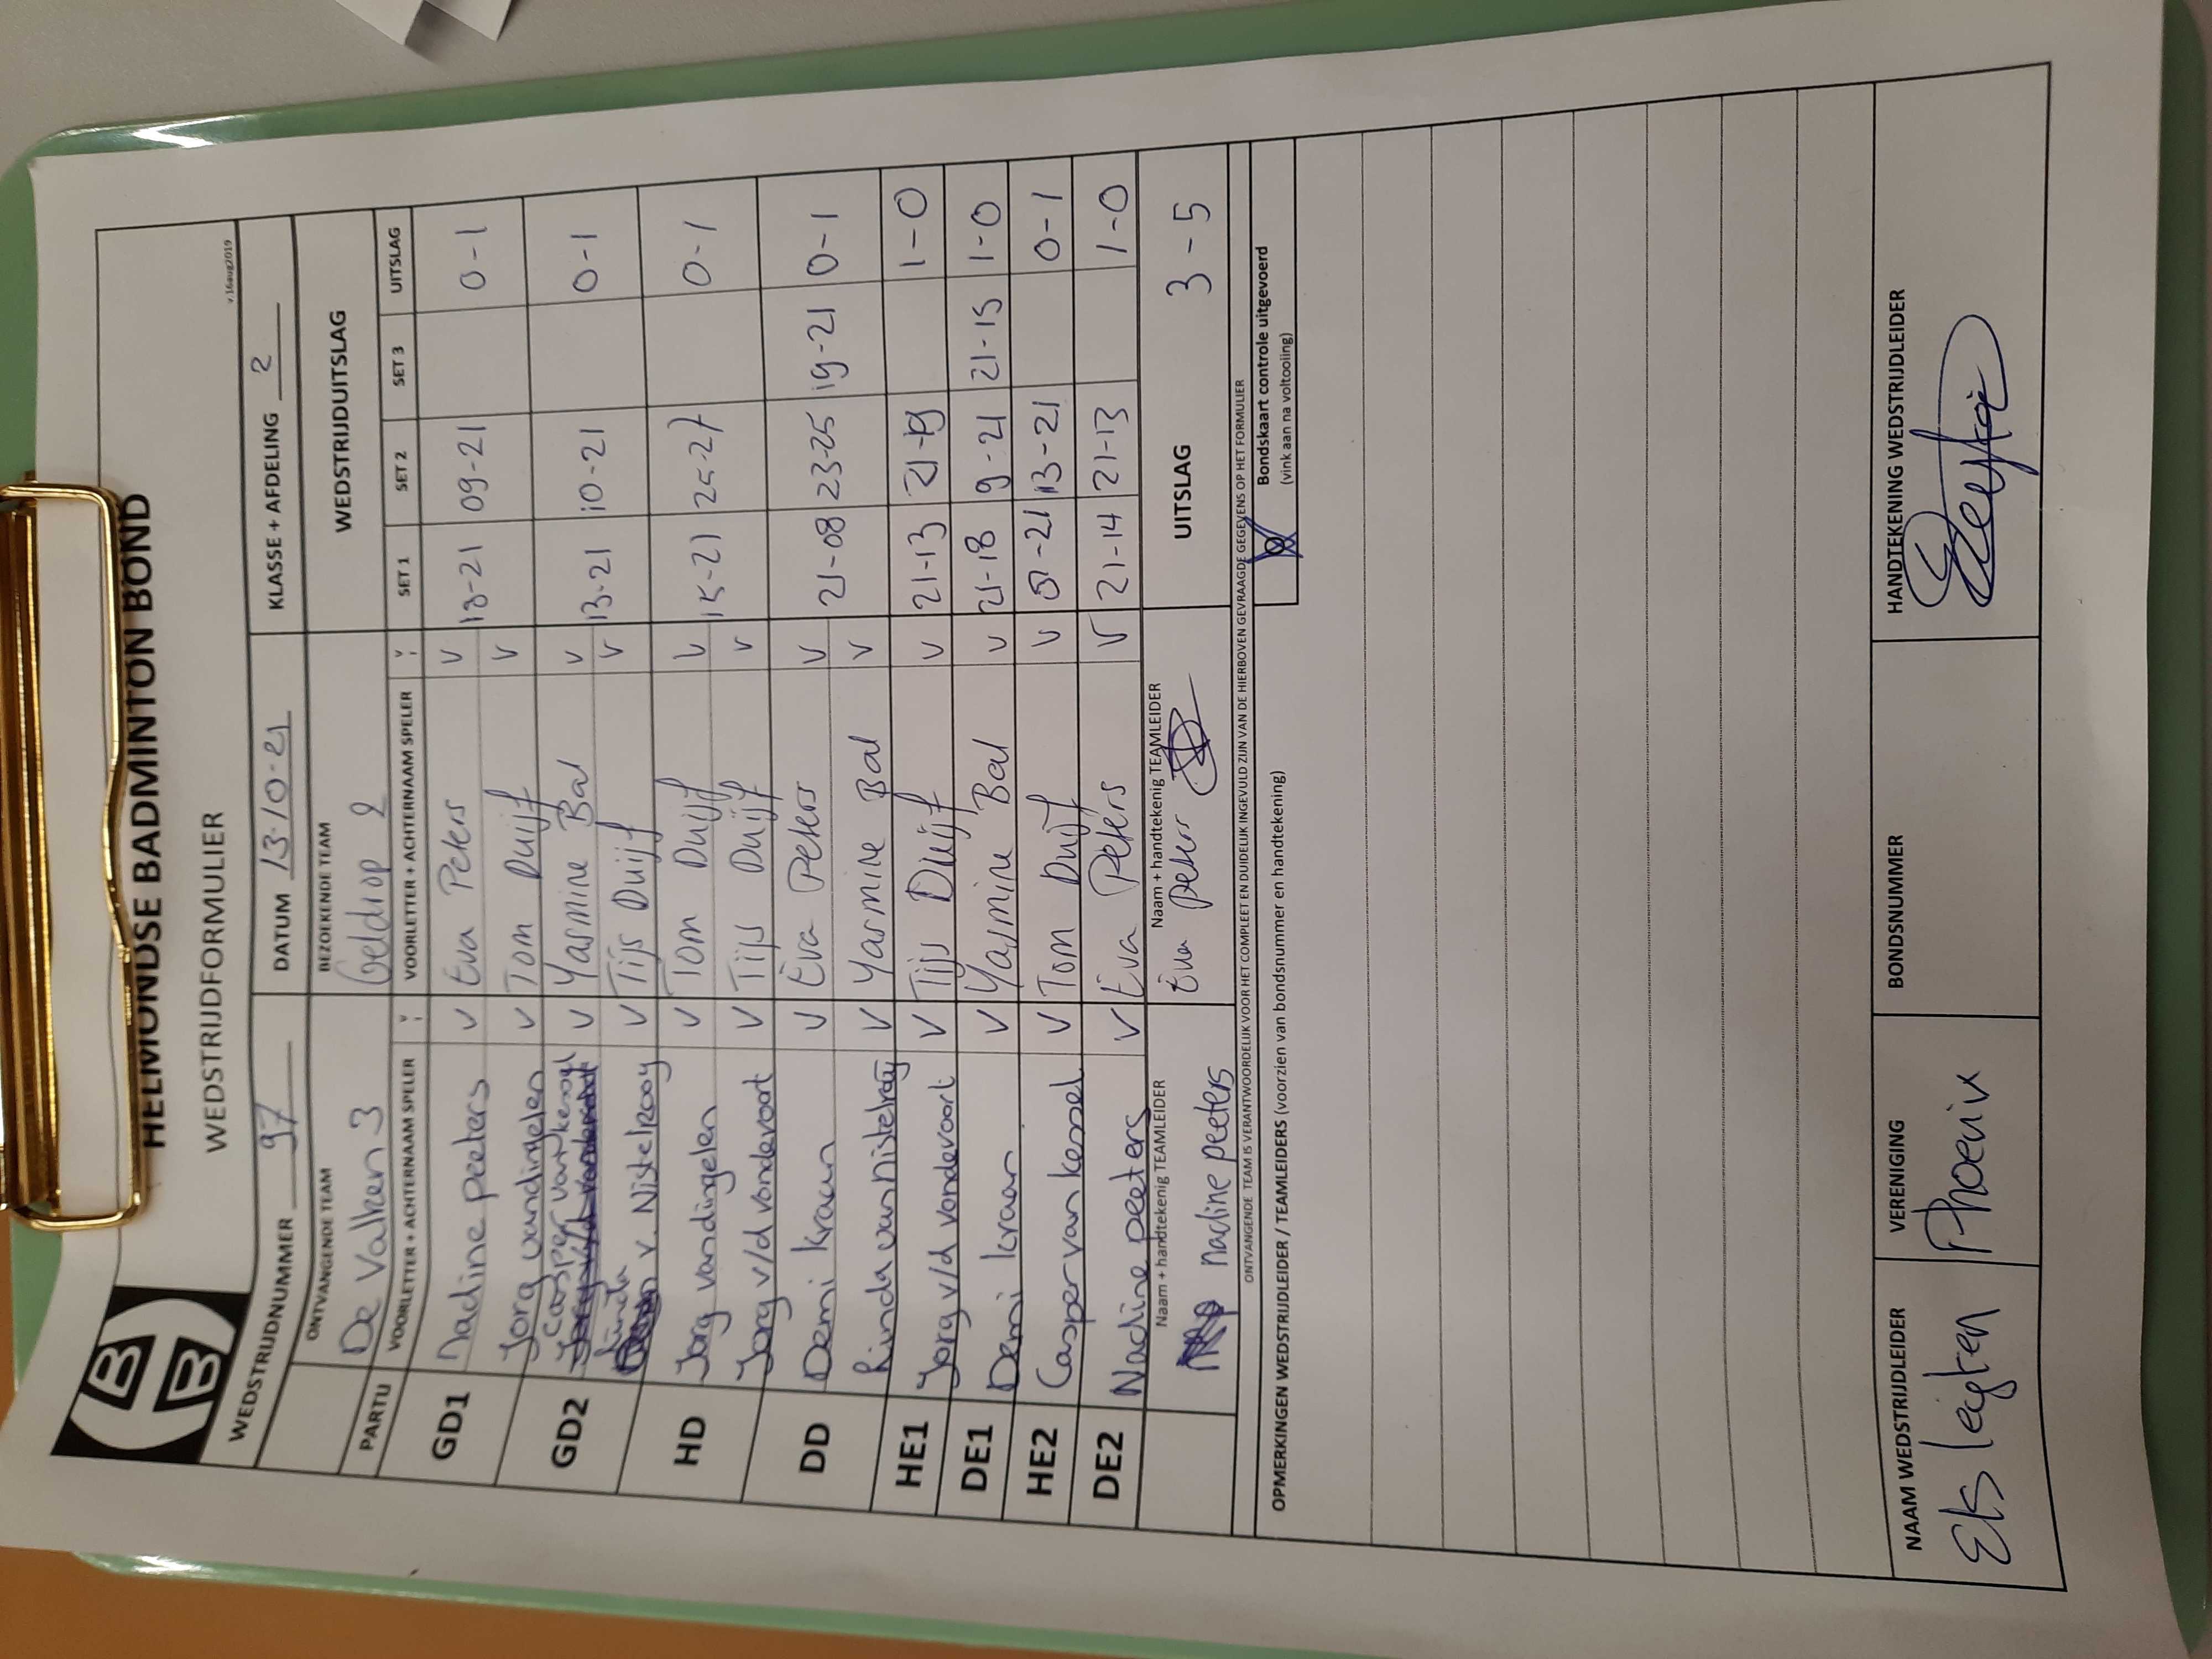 HBB
HELMONDSE BADMINTON BOND
WEDSTRIJDFORMULIER
v.16aug2019
WEDSTRIJDNUMMER 97 DATUM 13-10-21 KLASSE + AFDELING 2
ONTVANGENDE TEAM BEZOEKENDE TEAM WEDSTRIJDUITSLAG
De Valken 3 Geldrop 2
PARTIJ VOORLETTER + ACHTERNAAM SPELER V VOORLETTER + ACHTERNAAM SPELER V SET 1 SET 2 SET 3 UITSLAG
GD1 Nadine peeters V Eva Peters V 18-21 09-21 0-1
Jorg vandingelen V Tom Duijf V
GD2 Casper van kessel V Yasmine Bal V 13-21 10-21 0-1
Linda v. Nistelrooy V Tijs Duijf V
HD Jorg vandingelen V Tom Duijf V 15-21 25-27 0-1
Jorg v/d vondervoort V Tijs Duijf V
DD Demi kraan V Eva Peters V 21-08 23-25 19-21 0-1
Linda van Nistelrooij V Yasmine Bal V
HE1 Jorg v/d vondervoort V Tijs Duijf V 21-13 21-19 1-0
DE1 Demi kraan V Yasmine Bal V 21-18 9-21 21-15 1-0
HE2 Casper van kessel V Tom Duijf V 21 13-21 0-1
DE2 Nadine peeters V Eva Peters V 21-14 21-13 1-0
Naam + handtekenig TEAMLEIDER Naam + handtekenig TEAMLEIDER UITSLAG 3-5
nadine peeters Eva Peters
ONTVANGENDE TEAM IS VERANTWOORDELIJK VOOR HET COMPLEET EN DUIDELIJK INGEVULD ZIJN VAN DE HIERBOVEN GEVRAAGDE GEGEVENS OP HET FORMULIER
OPMERKINGEN WEDSTRIJDLEIDER / TEAMLEIDERS (voorzien van bondsnummer en handtekening)
Bondskaart controle uitgevoerd
(vink aan na voltooiing)
NAAM WEDSTRIJDLEIDER VERENIGING BONDSNUMMER HANDTEKENING WEDSTRIJDLEIDER
Els Phoenix